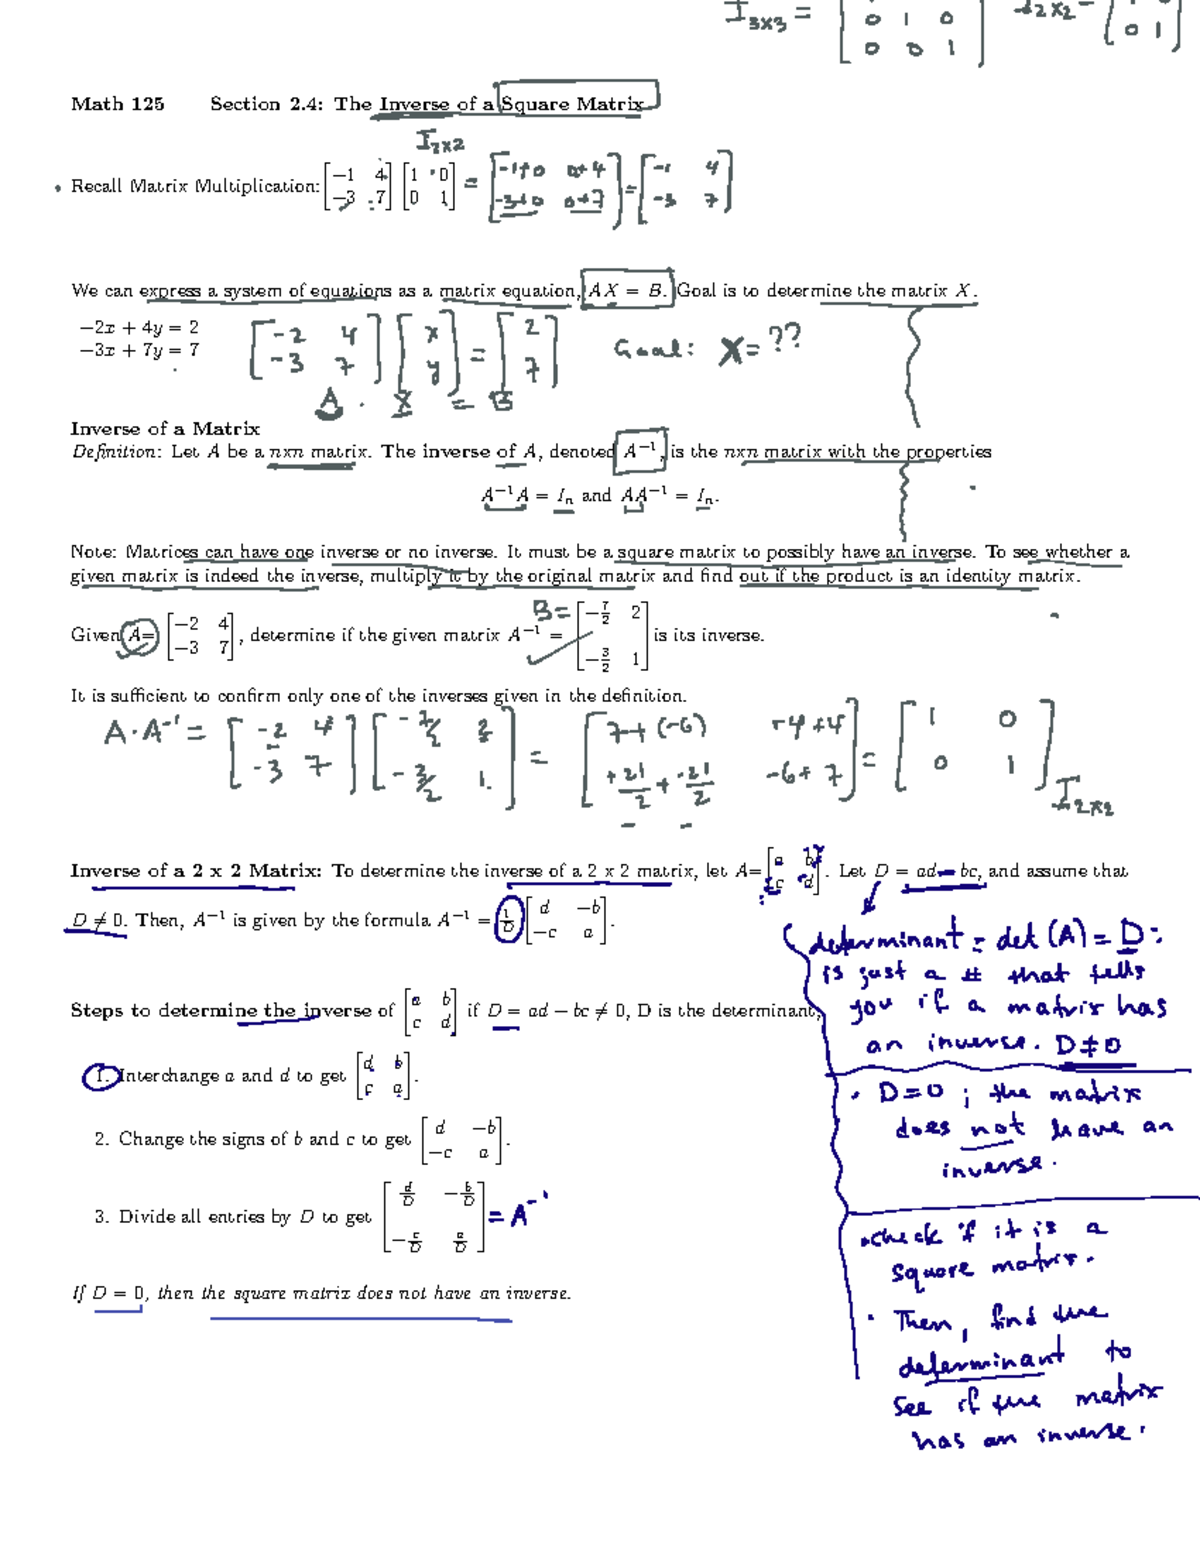 I3x3 = [ 0 1 0
0 0 1 ] I2x2 = [ 0 1 ]
Math 125 Section 2.4: The Inverse of a Square Matrix
I2x2
• Recall Matrix Multiplication: [−1 4; −3 7] [1 0; 0 1] = [-1+0 0+4; -3+0 0+7] = [-1 4; -3 7]
We can express a system of equations as a matrix equation, AX = B. Goal is to determine the matrix X.
−2x + 4y = 2
−3x + 7y = 7
[-2 4; -3 7] [x; y] = [2; 7] Goal: X = ??
A · X = B
Inverse of a Matrix
Definition: Let A be a nxn matrix. The inverse of A, denoted A⁻¹, is the nxn matrix with the properties
A⁻¹A = Iₙ and AA⁻¹ = Iₙ.
Note: Matrices can have one inverse or no inverse. It must be a square matrix to possibly have an inverse. To see whether a
given matrix is indeed the inverse, multiply it by the original matrix and find out if the product is an identity matrix.
B =
Given A= [−2 4; −3 7], determine if the given matrix A⁻¹ = [−7/2 2; −3/2 1] is its inverse.
It is sufficient to confirm only one of the inverses given in the definition.
A·A⁻¹ = [-2 4; -3 7] [-7/2 2; -3/2 1] = [7+(-6) -4+4; +21/2 + -21/2 -6+7] = [1 0; 0 1] I2x2
Inverse of a 2 x 2 Matrix: To determine the inverse of a 2 x 2 matrix, let A= [a b; c d]. Let D = ad − bc, and assume that
D ≠ 0. Then, A⁻¹ is given by the formula A⁻¹ = 1/D [d −b; −c a].
Steps to determine the inverse of [a b; c d] if D = ad − bc ≠ 0, D is the determinant,
1. Interchange a and d to get [d b; c a].
2. Change the signs of b and c to get [d −b; −c a].
3. Divide all entries by D to get [d/D −b/D; −c/D a/D] = A⁻¹
If D = 0, then the square matrix does not have an inverse.
determinant = det (A) = D:
is just a # that tells
you if a matrix has
an inverse. D ≠ 0
• D=0 ; the matrix
does not have an
inverse.
• check if it is a
square matrix.
• Then, find the
determinant to
see if the matrix
has an inverse.